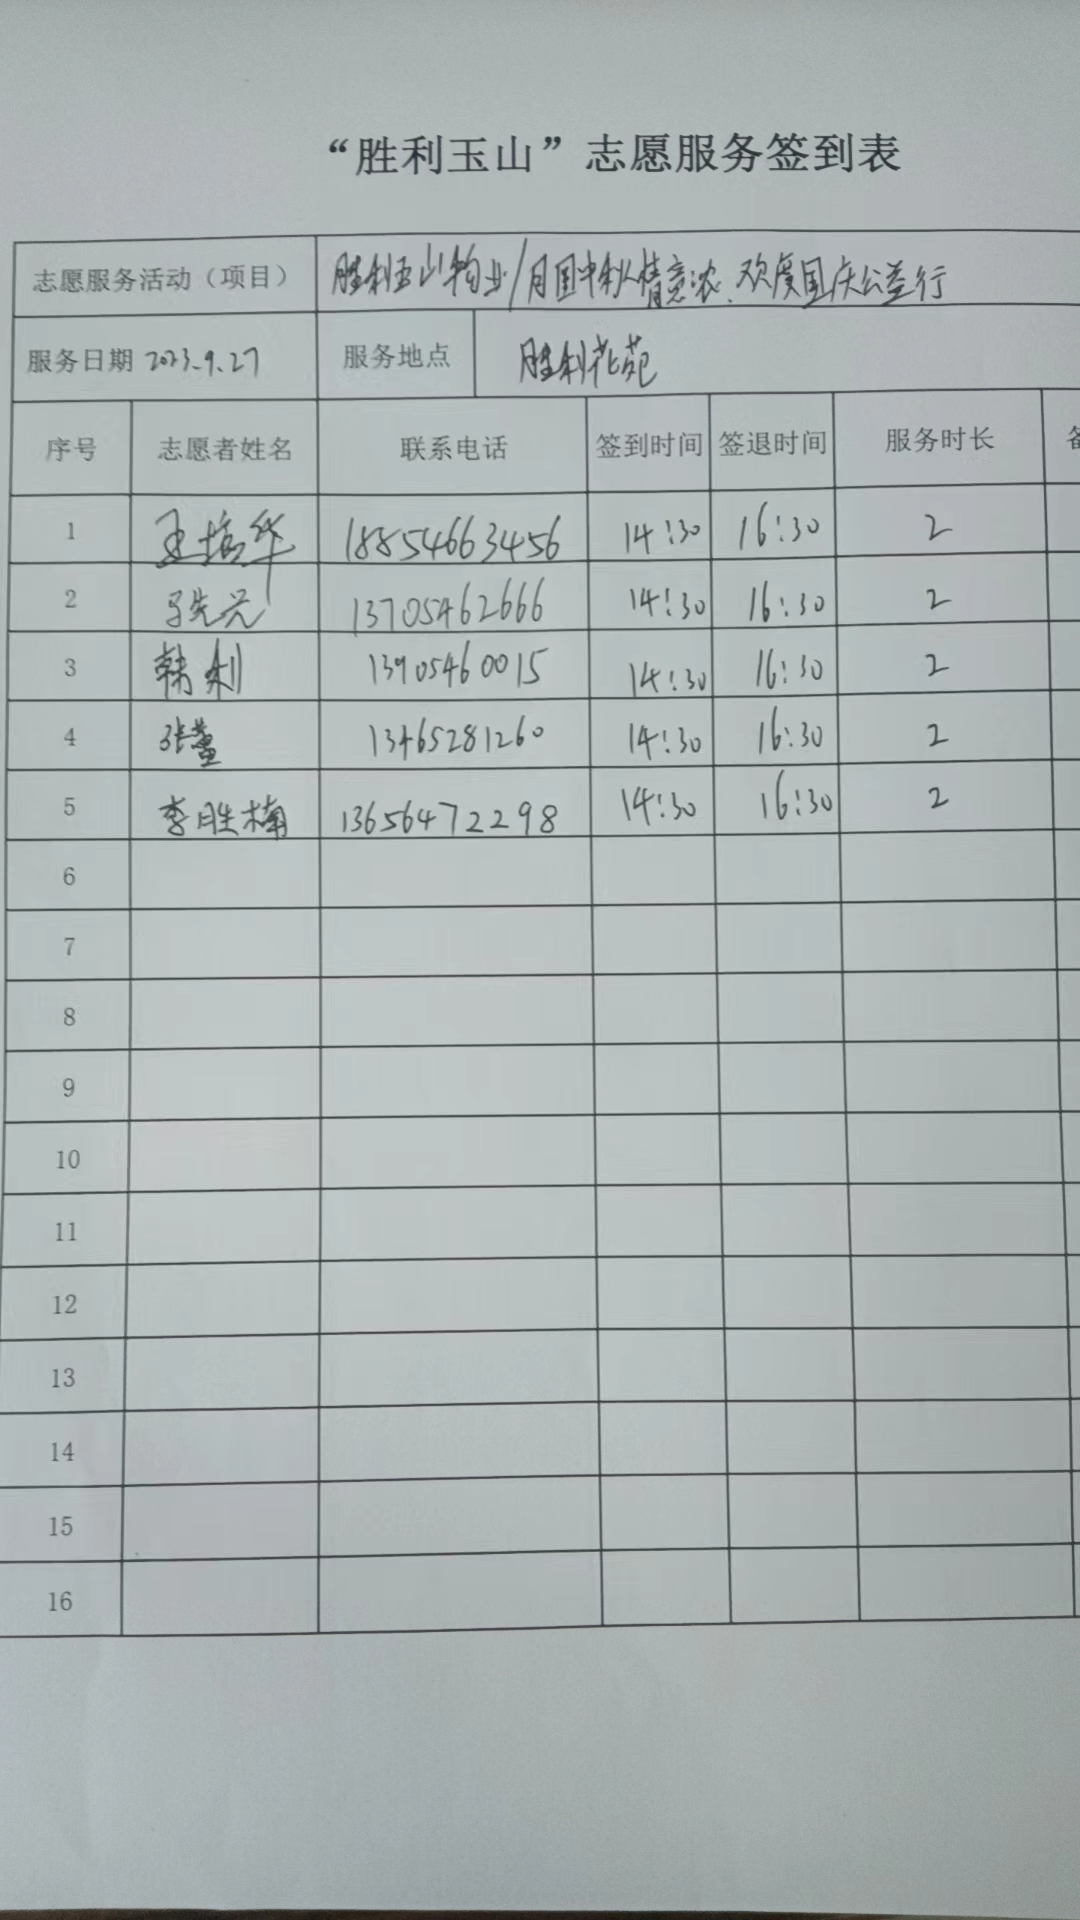 “胜利玉山”志愿服务签到表
志愿服务活动（项目） 胜利玉山物业/月圆中秋情意浓、欢度国庆公益行
服务日期 2023.9.27 服务地点 胜利花苑
序号 志愿者姓名 联系电话 签到时间 签退时间 服务时长
1 王培华 18854663456 14:30 16:30 2
2 13705462666 14:30 16:30 2
3 韩利 13905460015 14:30 16:30 2
4 张董 13465281260 14:30 16:30 2
5 李胜楠 13656472298 14:30 16:30 2
6
7
8
9
10
11
12
13
14
15
16